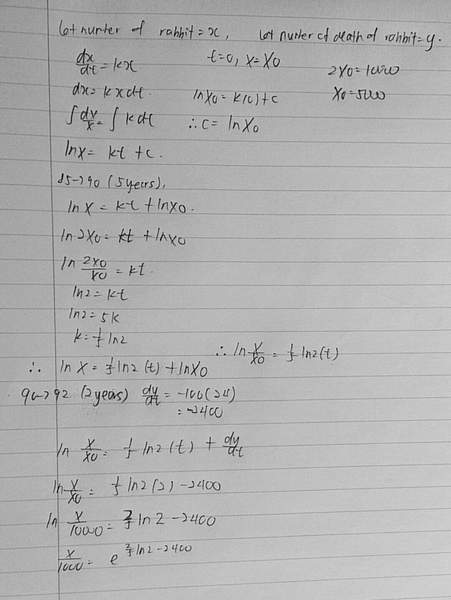 let number of rabbit = x, Let number of death of rabbit = y.
dx/dt = kx t=0, x=x0 2x0 = 10000
dx = kx dt. ln x0 = k(0) + c x0 = 5000
∫ dx/x = ∫ k dt ∴ c = ln x0
ln x = kt + c.
85→90 (5 years),
ln x = kt + ln x0.
ln 2x0 = kt + ln x0
ln 2x0/x0 = kt.
ln 2 = kt
ln 2 = 5k
k = 1/5 ln 2
∴ ln x = 1/5 ln 2 (t) + ln x0 ∴ ln x/x0 = 1/5 ln 2 (t)
90→92 (2 years) dy/dt = -100(24)
= -2400
ln x/x0 = 1/5 ln 2 (t) + dy/dt
ln x/x0 = 1/5 ln 2 (2) - 2400
ln x/10000 = 2/5 ln 2 - 2400
x/1000 = e^(2/5 ln 2 - 2400)